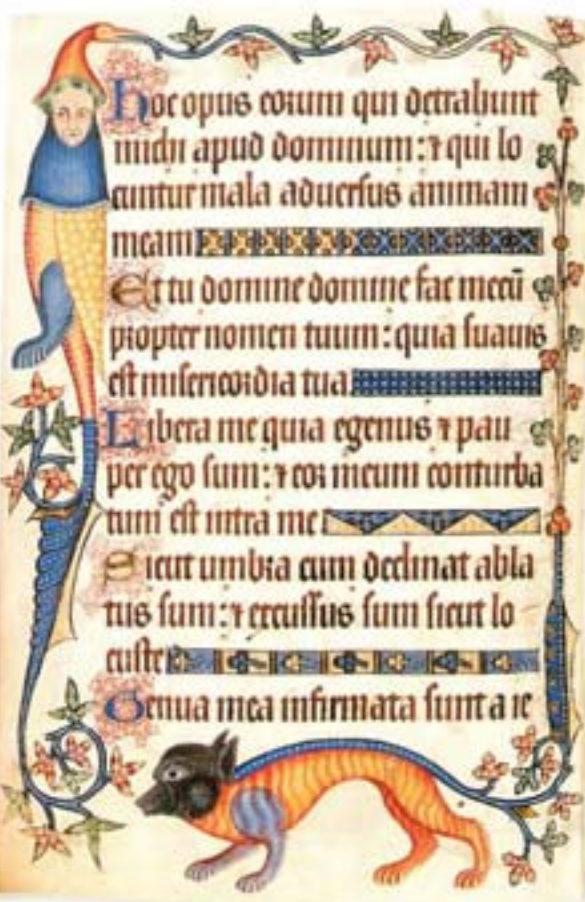 Hoc opus eorum qui detrahunt
michi apud dominum : ⁊ qui lo
cuntur mala aduersus animam
meam
Et tu domine domine fac mecū
propter nomen tuum : quia suauis
est misericordia tua
Libera me quia egenus ⁊ pau
per ego sum : ⁊ cor meum conturba
tum est intra me
Sicut umbra cum declinat abla
tus sum : ⁊ excussus sum sicut lo
custe
Genua mea infirmata sunt a ie